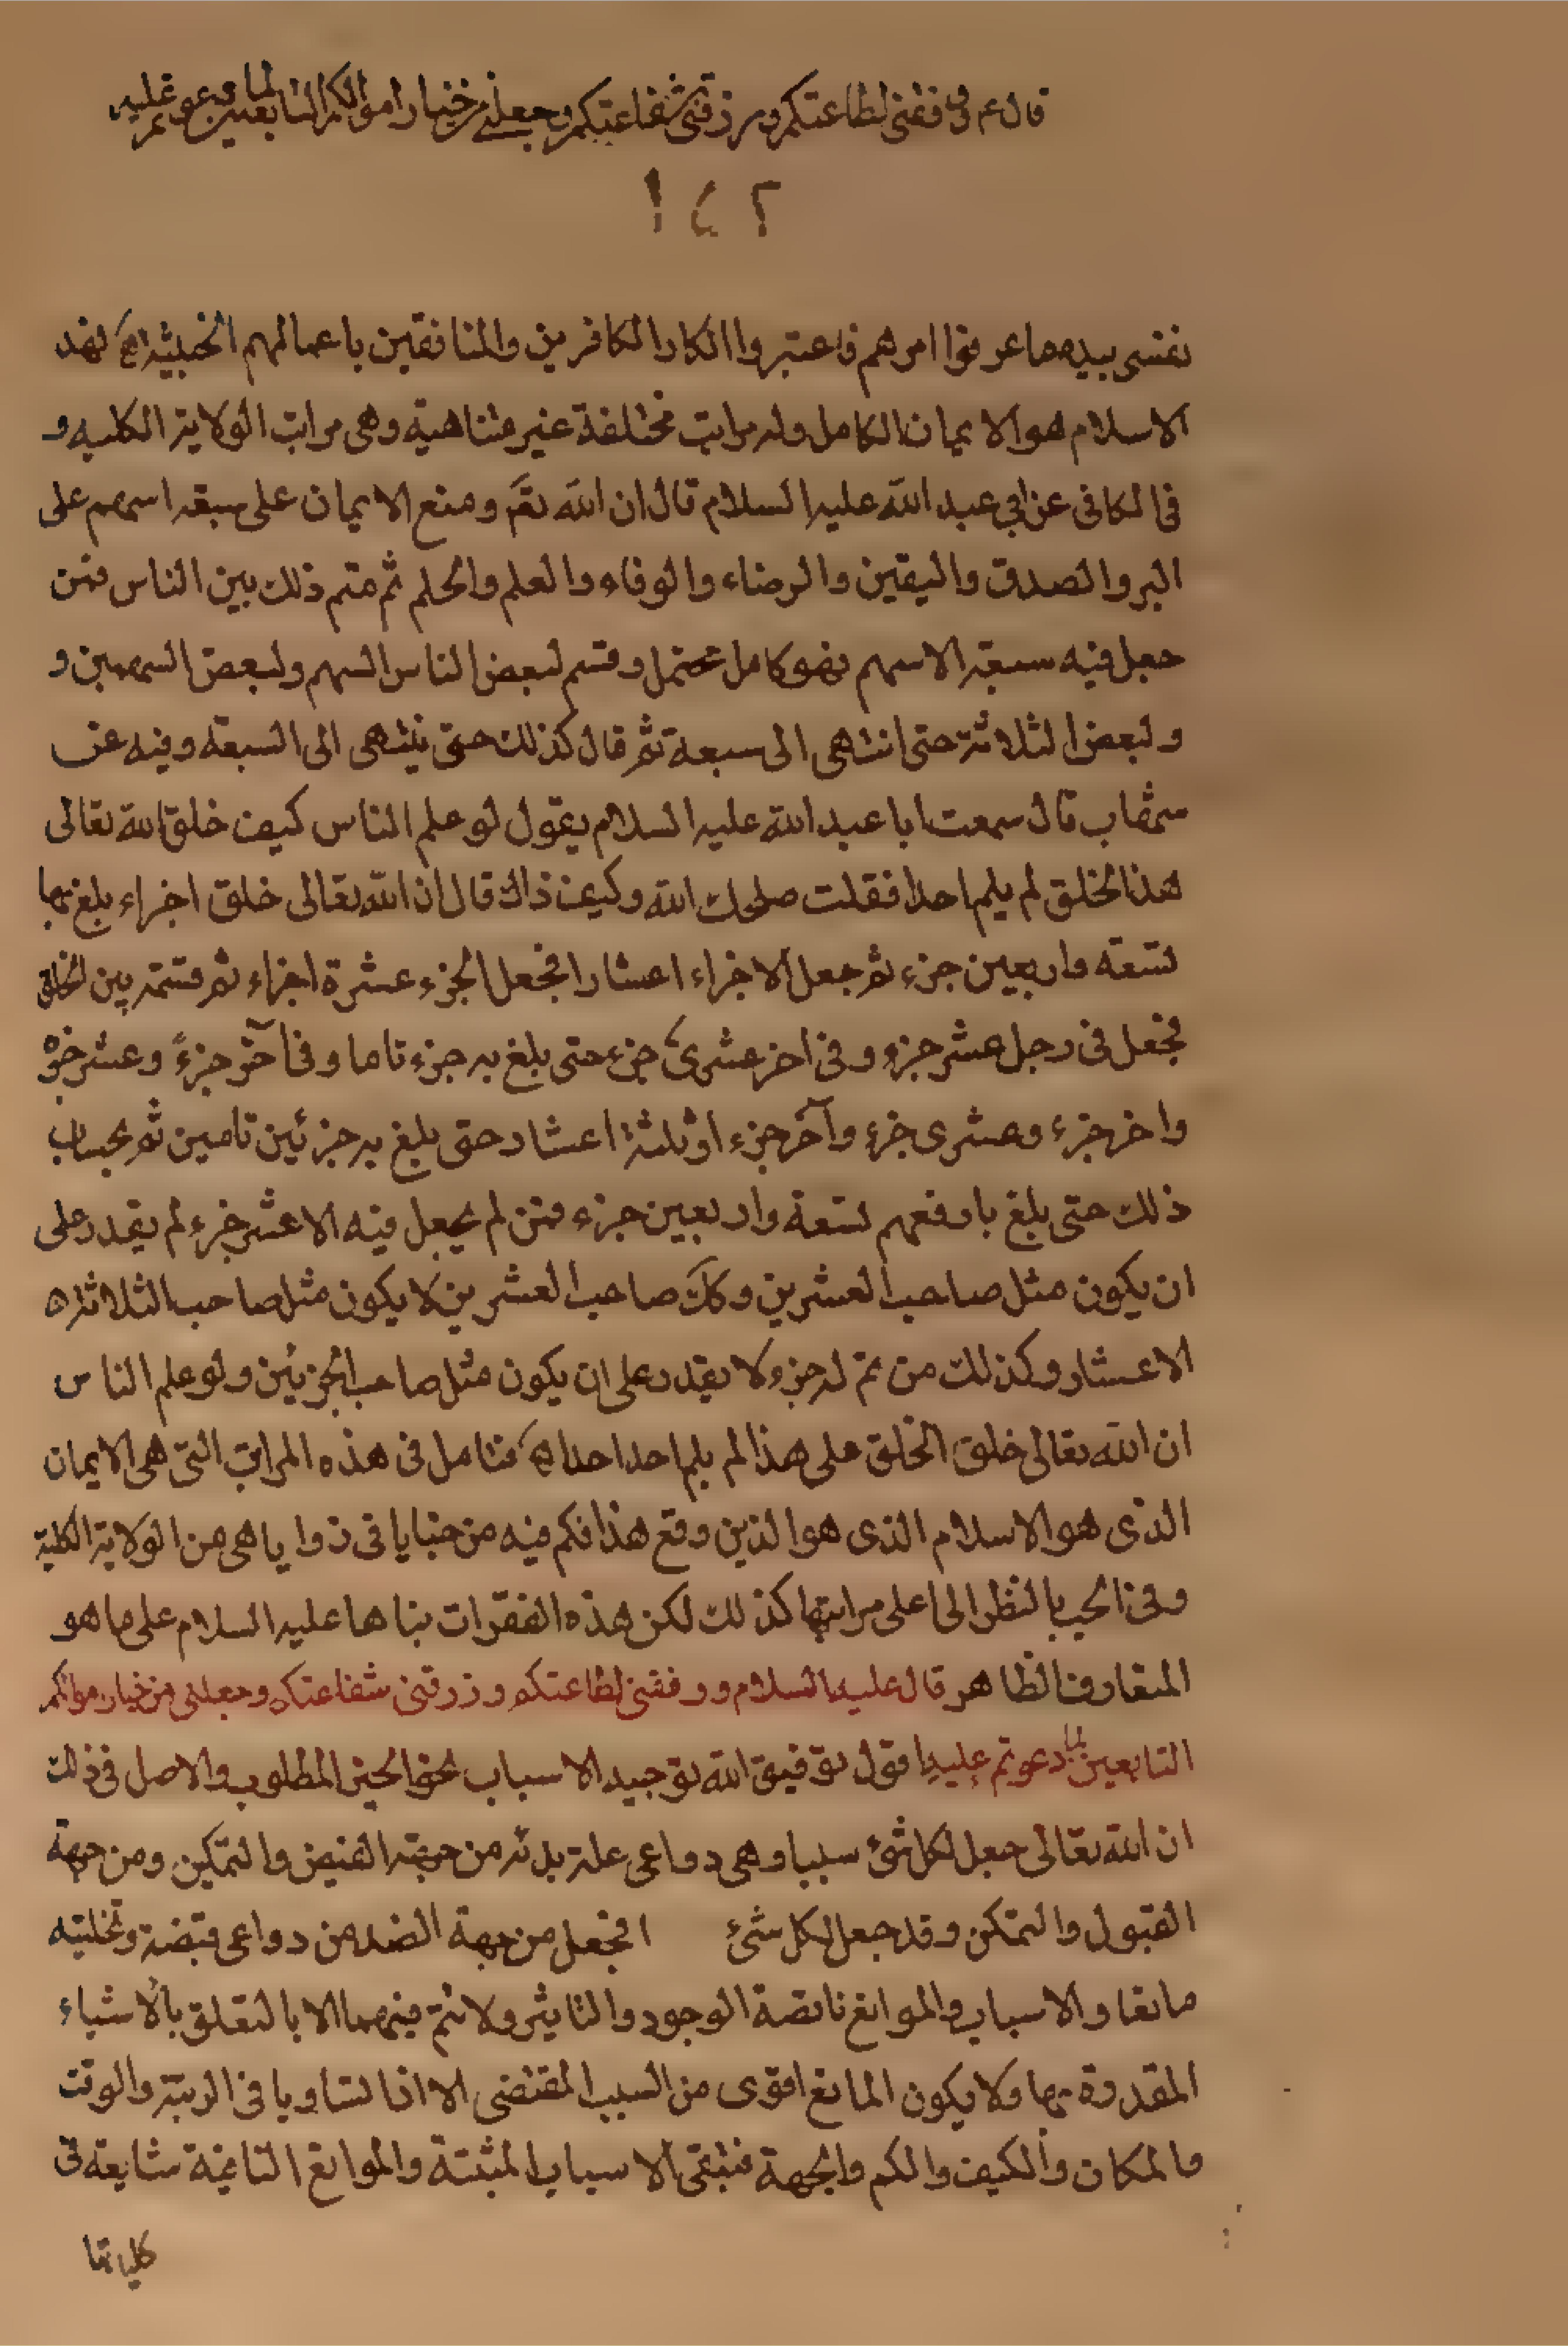 قال ع م ووفقني لطاعتكم ورزقني شفاعتكم وجعلني من خيار مواليكم التابعين لما دعوتم عليه
١٤٢
نفسى بيده ما عرفوا امرهم فاعتبروا انكار الكافرين والمنافقين باعمالهم الخبيثة فهذ
الاسلام هو الايمان الكامل وله مراتب مختلفة غير متناهية وهى مراتب الولاية الكليه و
فى الكافى عن ابي عبد الله عليه السلام قال ان الله تعـ وضع الايمان على سبعة اسهم على
البر والصدق واليقين والرضاء والوفاء والعلم والحلم ثم قسم ذلك بين الناس فمن
جعل فيه سبعة الاسهم فهو كامل محتمل وقسم لبعض الناس السهم ولبعض السهمين و
ولبعض الثلاثة حتى انتهى الى سبعة ثم قال كذلك حتى ينتهى الى السبعة وفيه عن
شهاب قال سمعت ابا عبد الله عليه السلام يقول لو علم الناس كيف خلق الله تعالى
هذا الخلق لم يلم احدا فقلت اصلحك الله وكيف ذاك قال ان الله تعالى خلق اجزاء بلغ بها
تسعة واربعين جزء ثم جعل الاجزاء اعشارا فجعل الجزء عشرة اجزاء ثم قسمه بين الخلق
فجعل فى رجل عشر جزء وفى اخر عشرى جزء حتى بلغ به جزء تاما وفى آخر جزءً وعشر جزء
واخر جزء وعشرى جزء وآخر جزء او ثلثة اعشار حتى بلغ به جزئين تامين ثم بحساب
ذلك حتى بلغ بارفعهم تسعة واربعين جزء فمن لم يجعل فيه الا عشر جزء لم يقدر على
ان يكون مثل صاحب العشرين وكك صاحب العشرين لا يكون مثل صاحب الثلاثة
الاعشار وكذلك من تم له جزء لا يقدر على ان يكون مثل صاحب الجزئين ولو علم الناس
ان الله تعالى خلق الخلق على هذا لم يلم احد احدا فتامل فى هذه المراتب التى هى الايمان
الذى هو الاسلام الذى هو الدين وقع هذا فكم فيه من خبايا فى زوايا هى من الولاية الكلية
وفى الحب بالنظر الى اعلى مراتبها كذلك لكن هذه الفقرات بناها عليه السلام على ما هو
المتعارف الظاهر قال عليه السلام ووفقنى لطاعتكم ورزقنى شفاعتكم وجعلنى من خيار مواليكم
التابعين لما دعوتم عليه اقول توفيق الله توجيه الاسباب نحو الخير المطلوب والاصل فى ذلك
ان الله تعالى جعل لكل شئ سببا وهى دواعى من جهة الفيض والتمكين ومن جهة
القبول والتمكن وقد جعل لكل شئ افجعل من جهة الضد من دواعى قبضه وتخليته
مانعا والاسباب والموانع ناقصة الوجود والتاثير ولا تتم فيهما الا بالتعلق بالاشياء
المقدرة بها ولا يكون المانع اقوى من السبب المقتضى الا اذا تساويا فى الرتبة والوقت
والمكان والكيف والكم والجهة فتبقى الاسباب المثبتة والموانع شايعة فى
كلياتها